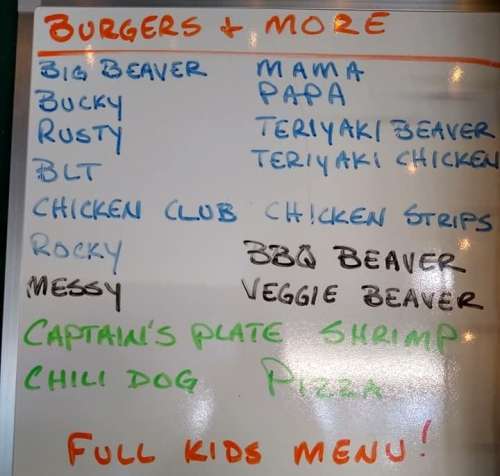 BURGERS + MORE
BIG BEAVER MAMA
BUCKY PAPA
RUSTY TERIYAKI BEAVER
BLT TERIYAKI CHICKEN
CHICKEN CLUB CHICKEN STRIPS
ROCKY BBQ BEAVER
MESSY VEGGIE BEAVER
CAPTAIN'S PLATE SHRIMP
CHILI DOG PIZZA
FULL KIDS MENU!